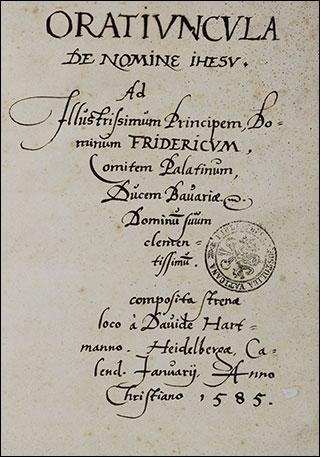 ORATIVNCVLA
DE NOMINE IHESV.
Ad
Illustrissimum Principem, Do-
minum FRIDERICVM,
Comitem Palatinum,
Ducem Bauariæ
Dominũ suum
clemen-
tissimũ.
composita strenæ
loco à Dauide Hart-
manno. Heidelbergæ, Ca-
lend. Januarij, Anno
Christiano 1585.